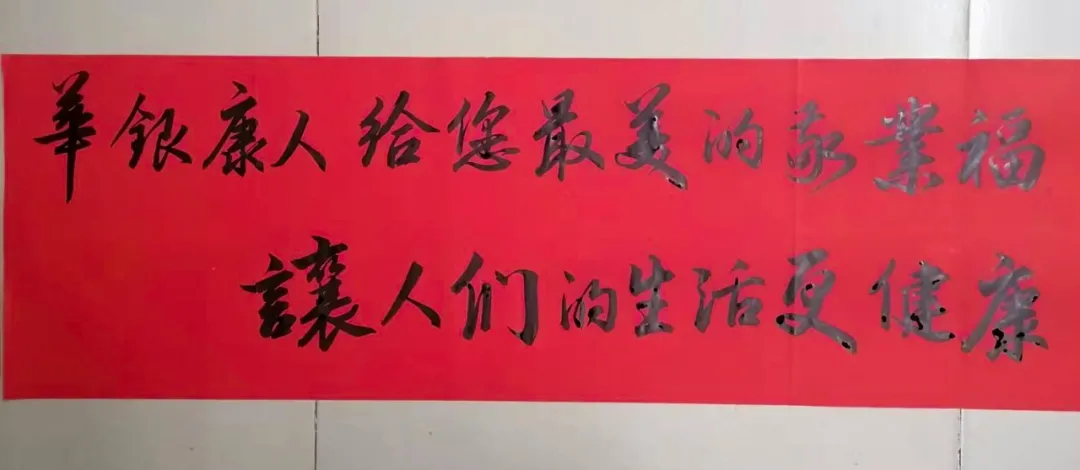 華銀康人给您最美的家業福
讓人们的生活更健康